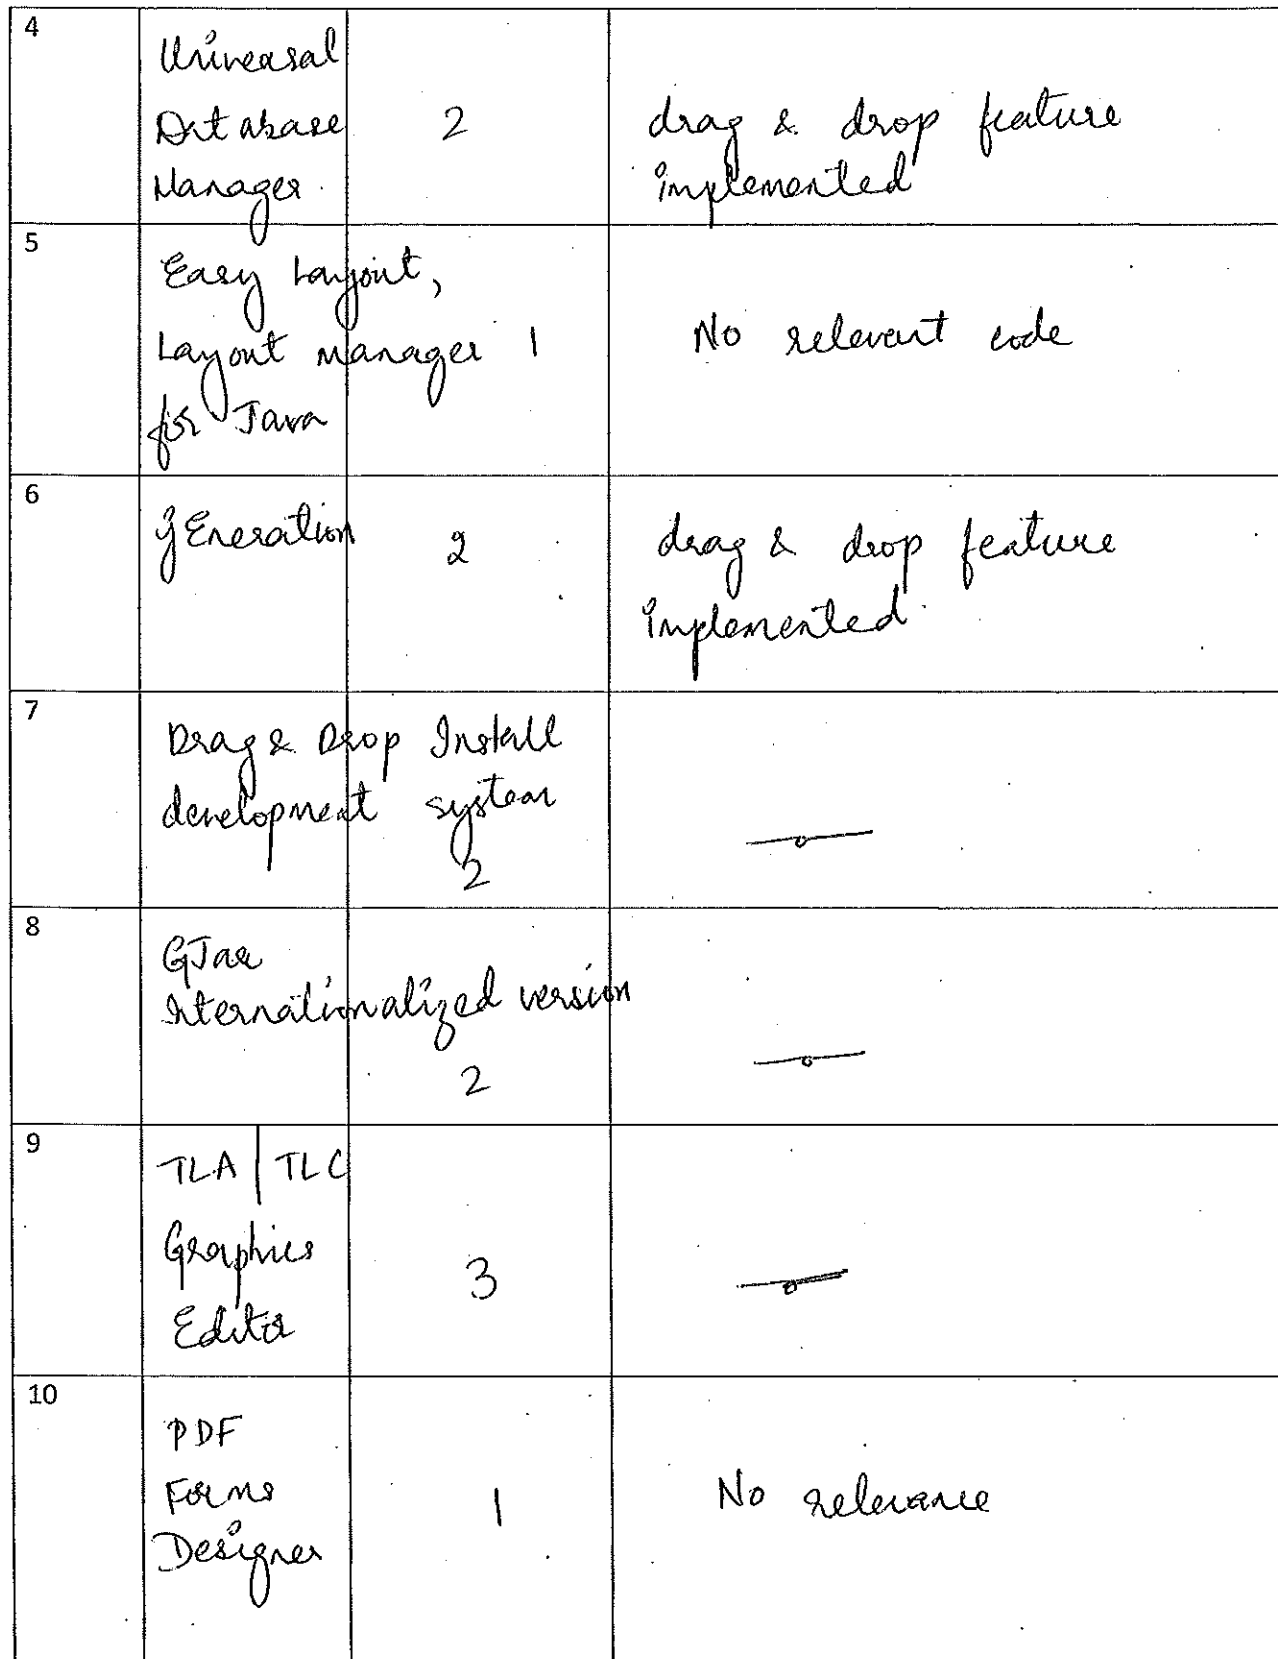 4
Universal
Database 2 drag & drop feature
Manager implemented
5
Easy Layout,
Layout manager 1 No relevant code
for Java
6
jEneration 2 drag & drop feature
implemented
7
Drag & Drop Install
development system
2
8
GJar
Internationalized version
2
9
TLA | TLC
Graphics
Editor 3
10
PDF
Forms 1 No relevance
Designer